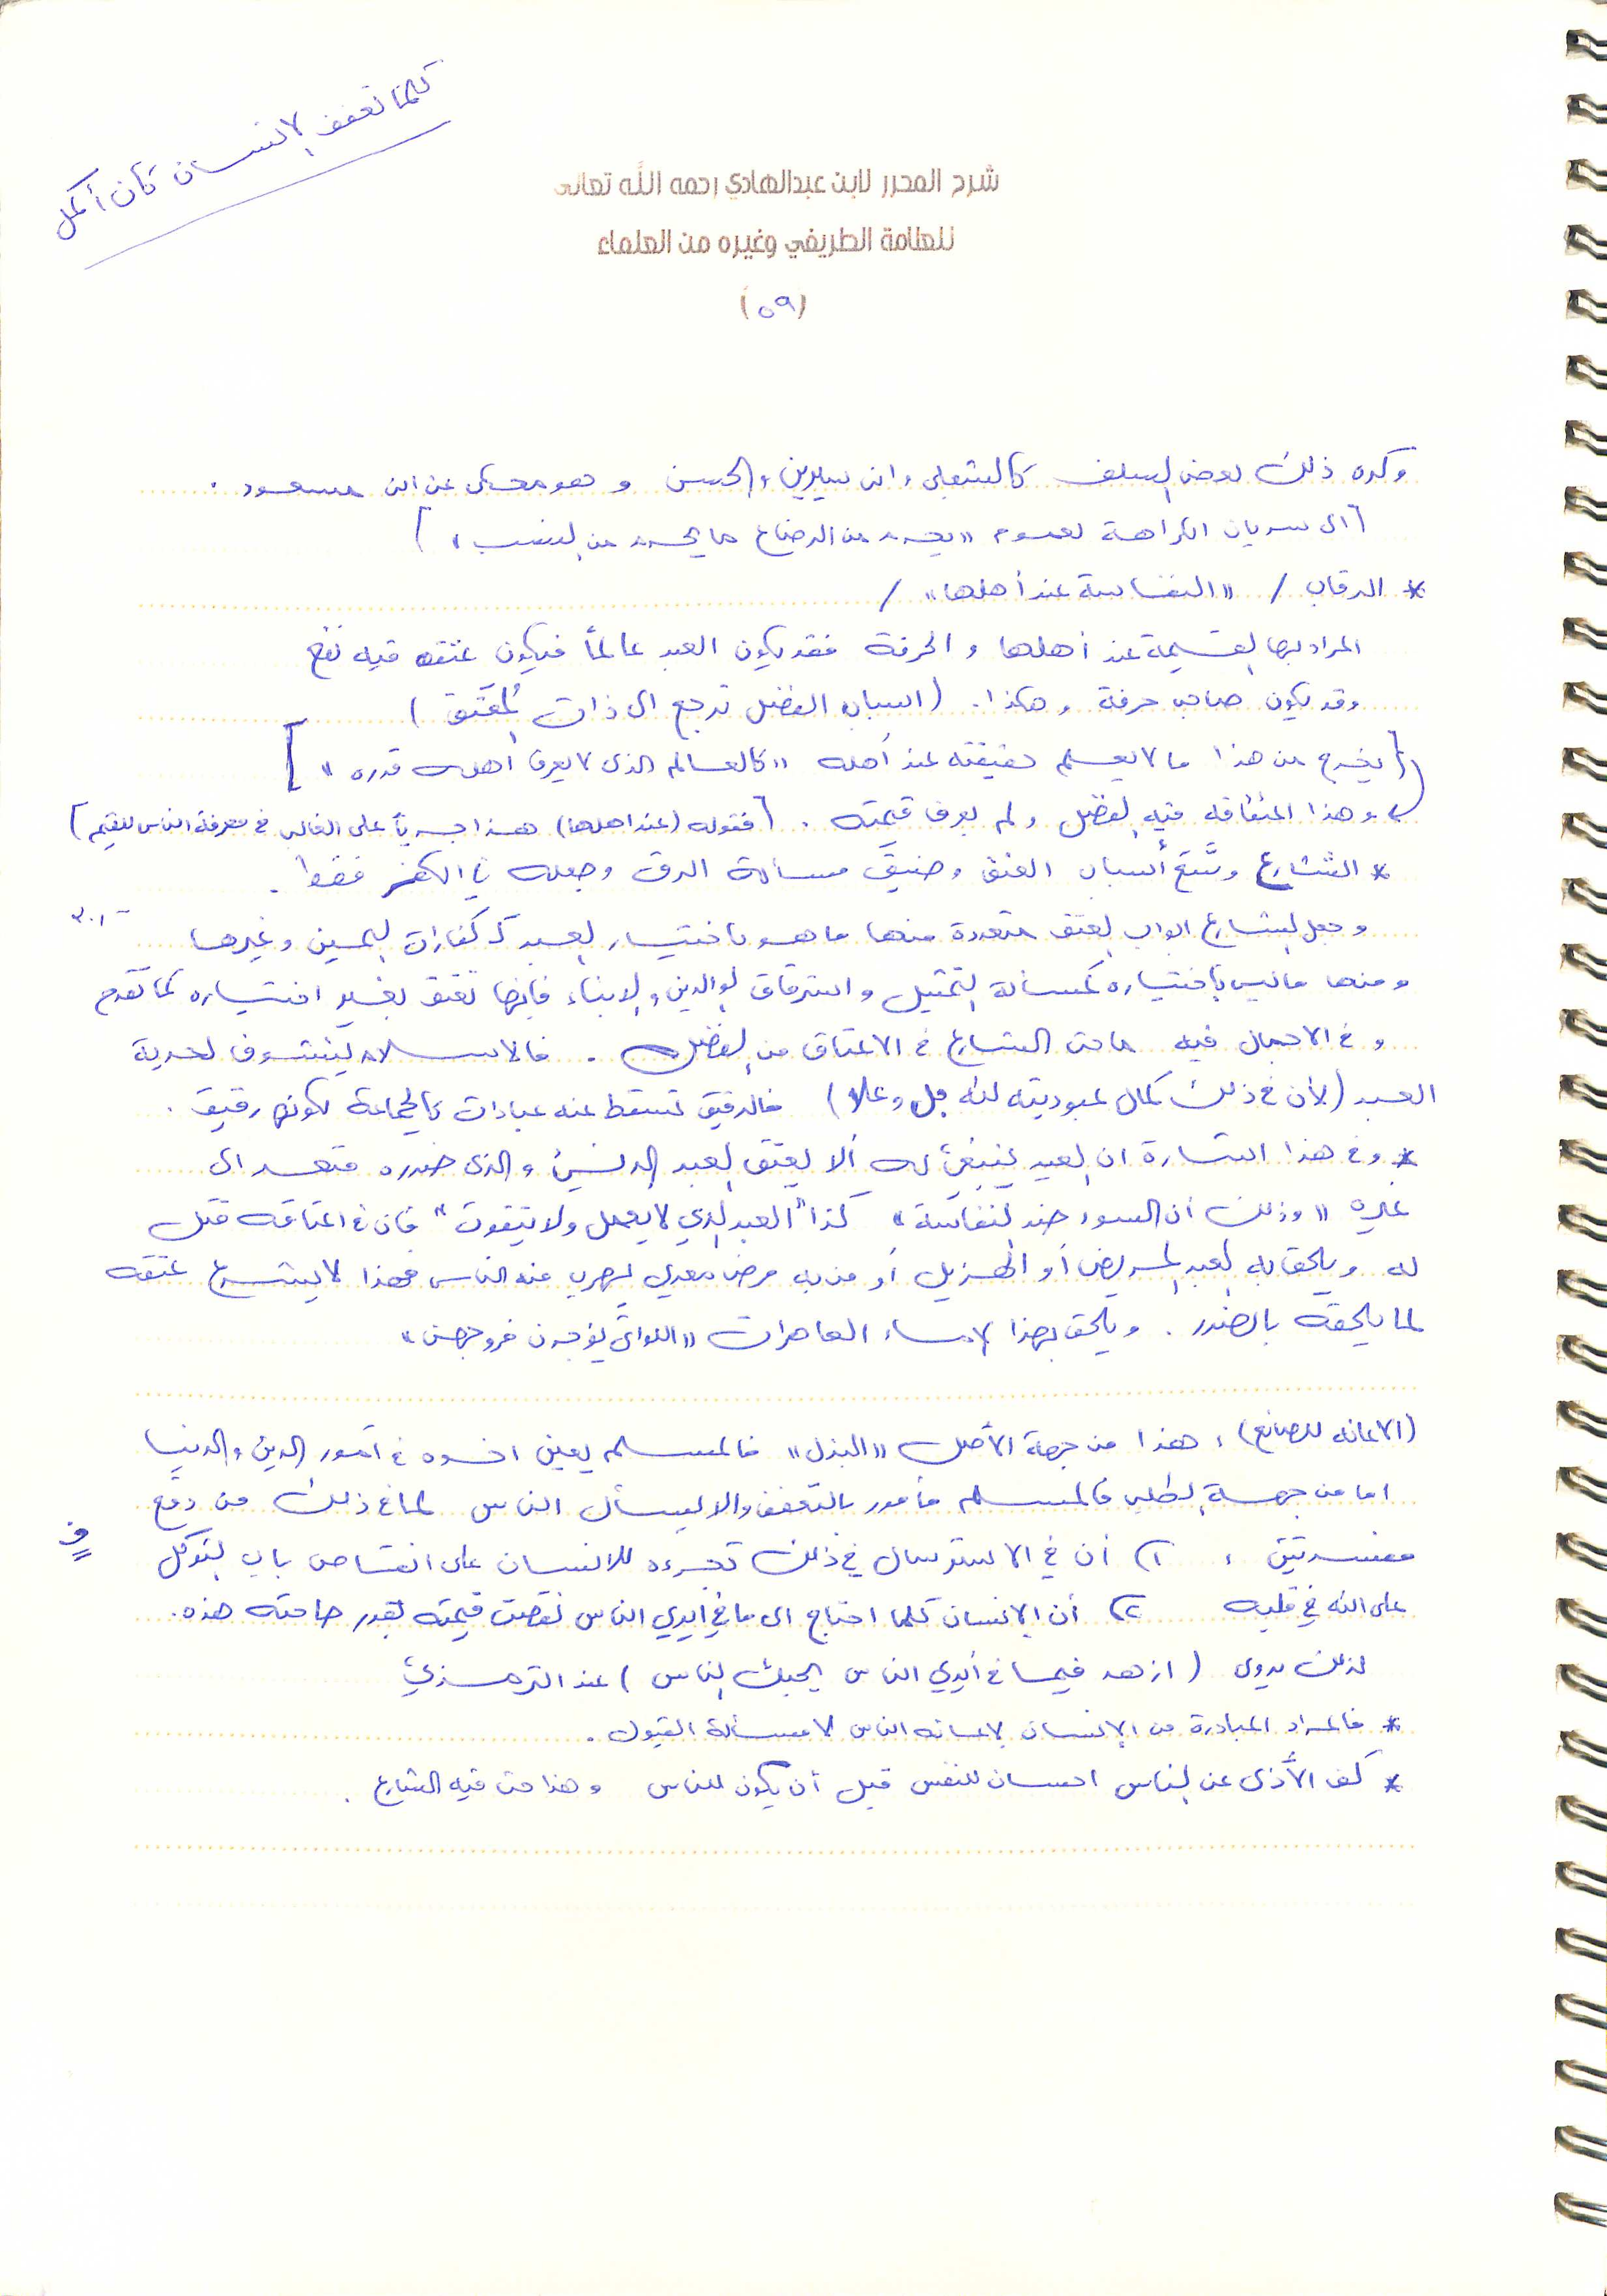 كلما تعفف الإنسان كان أكمل
شرح المحرر لابن عبدالهادي رحمه الله تعالى
للعلامة الطريفي وغيره من العلماء
(٥٩)
وكره ذلك بعض السلف كالشعبي وابن سيرين والحسن وهو محكى عن ابن مسعود .
[الى سريان الكراهة لعموم «يحرم من الرضاع ما يحرم من النسب»]
* الرقاب / «النفاسة عند أهلها» /
المراد بها القيمة عند أهلها والحرفة فقد يكون العبد عالماً فيكون عتقه فيه نفع
وقد يكون صاحب حرفة وهكذا . (اسباب الفضل ترجع الى ذات المُعتَق)
[يخرج من هذا ما لا يعلم حقيقته عند أهله «كالعالم الذى لا يعرف أهله قدره»]
وهذا اعتاقه فيه الفضل ولم يعرف قيمته . [فقوله (عند اهلها) هذا جرياً على الغالب في معرفة الناس للقيم]
* الشارع وسَّع أسباب العتق وضيَّق مسألة الرق وجعله في الكفر فقط .
وجعل الشارع ابواب العتق متعددة منها ما هو باختيار العبد كـ كفارات اليمين وغيرها
ومنها ما ليس باختياره كمسألة التمثيل واسترقاق الوالدين والابناء فإنها تعتق بغير اختياره كما تقدم
وفي الاجمال فيه ما حث الشارع في الاعتاق من الفضل . فالاسلام يتشوف لحرية
العبد (لأن في ذلك كمال عبوديته لله جل وعلا) فالرقيق تسقط عنه عبادات كالجماعة لكونه رقيق .
* وفي هذا اشارة ان العبد ينبغي له ألا يعتق العبد الدنيئ والذى ضرره متعد الى
غيره «وذلك أن السوء ضد النفاسة» كذا "العبد الذي لا يعمل ولا يتقوت" فان في اعتاقه قتل
له ويلحق به العبد المريض أو الهزيل أو من به مرض معدي يهرب منه الناس فهذا لا يشرع عتقه
لما يلحقه بالضرر . ويلحق بهذا الاماء العاهرات «اللواتي يؤجرن فروجهن»
(الاعانه للصانع) ، هذا من جهة الأصل «البذل» فالمسلم يعين اخوه في أمور الدين والدنيا
اما من جهة الطلب فالمسلم مأمور بالتعفف والا يسأل الناس لما في ذلك من دفع
مفسدتين ، ١) أن في الاسترسال في ذلك تجرء للانسان على انتقاص باب التوكل
على الله في قلبه ٢) أن الإنسان كلما احتاج الى ما في أيدي الناس نقصت قيمته بقدر حاجته هذه .
لذلك يروى (ازهد فيما في أيدي الناس يحبك الناس) عند الترمذي
* فالمراد المبادرة من الإنسان لاعانه الناس لا مسألة القبول .
* كف الأذى عن الناس احسان للنفس قبل أن يكون للناس وهذا حث فيه الشارع .